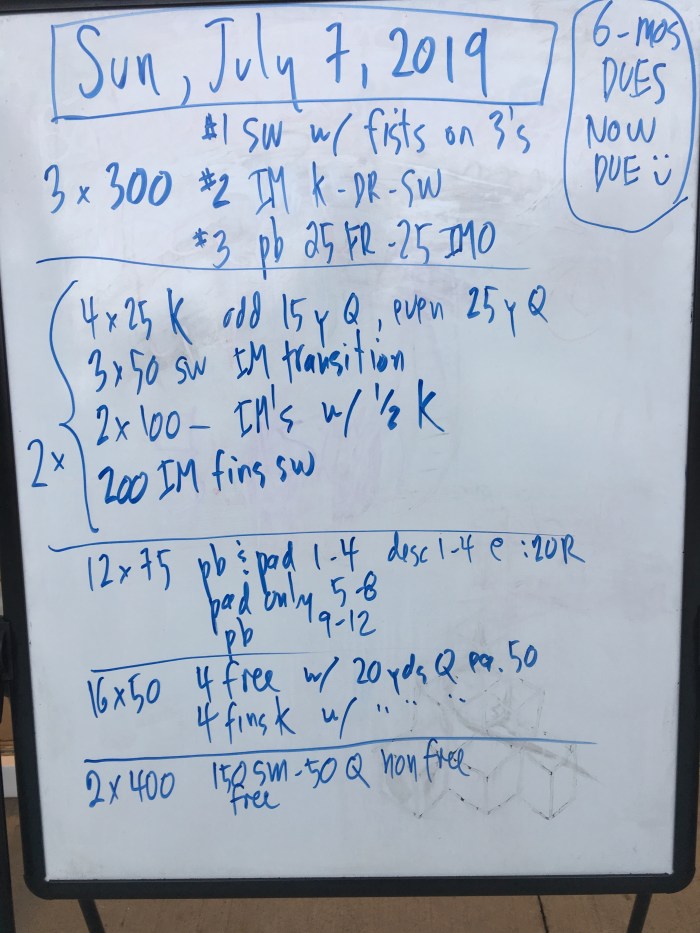 Sun, July 7, 2019
6-mos
DUES
NOW
DUE
#1 SW w/ fists on 3's
3 x 300 #2 IM K-DR-SW
#3 pb 25 FR-25 IMO
2x
4x25 K odd 15y Q, even 25y Q
3x50 sw IM transition
2x100- IM's w/ 1/2 K
200 IM fins sw
12x75 pb & pad 1-4 desc 1-4 @ :20R
pad only 5-8
pb 9-12
16x50 4 free w/ 20 yds Q ea. 50
4 fins K w/ " " "
2x400 150 sm-50 Q non free
free